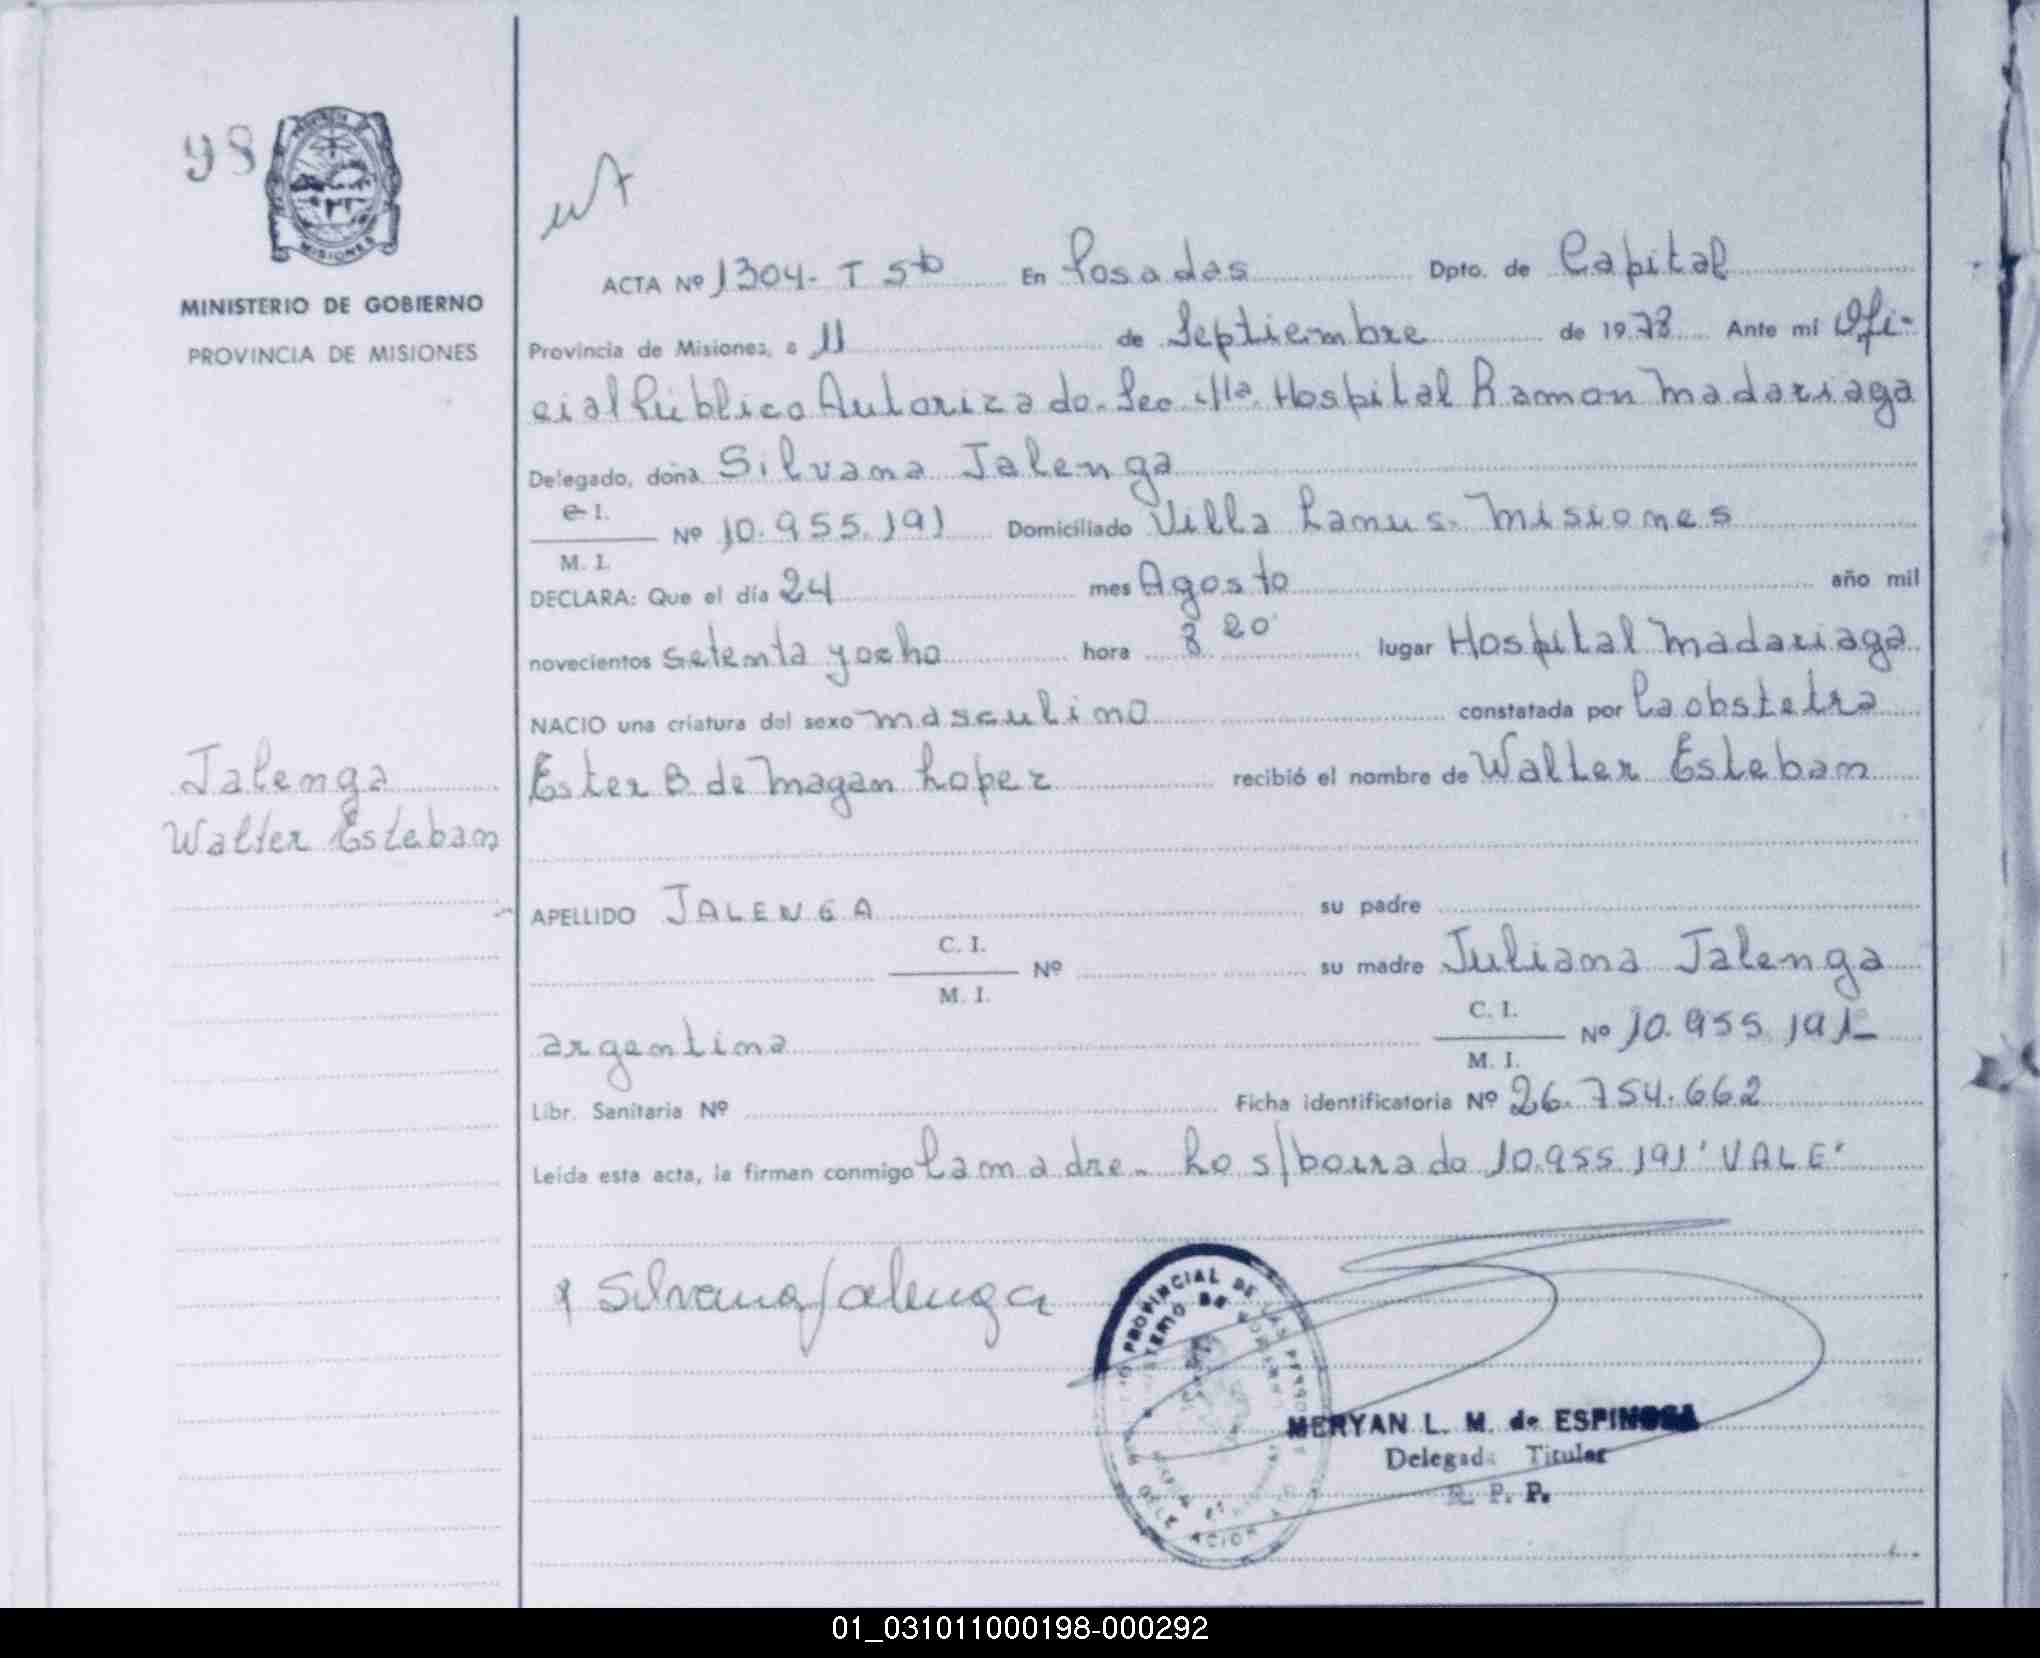 98
MISIONES
MINISTERIO DE GOBIERNO
PROVINCIA DE MISIONES
ACTA Nº 1304- T 5to En Posadas Dpto. de Capital
Provincia de Misiones, a 11 de Septiembre de 1978 Ante mí Ofi-
cial Público Autorizado. Sec. Hospital Ramon Madariaga
Delegado, doña Silvana Jalenga
C. I.
M. I. Nº 10.955.191 Domiciliado Villa Lanus. Misiones
DECLARA: Que el día 24 mes Agosto año mil
novecientos setenta y ocho hora 8 20 lugar Hospital Madariaga
NACIO una criatura del sexo masculino constatada por la obstetra
Ester B de Magan Lopez recibió el nombre de Walter Esteban
Jalenga
Walter Esteban
APELLIDO JALENGA su padre
C. I.
M. I. Nº su madre Juliana Jalenga
argentina C. I.
M. I. Nº 10.955.191-
Libr. Sanitaria Nº Ficha identificatoria Nº 26.754.662
Leída esta acta, la firman conmigo la madre. Lo s/borrado 10.955.191 "VALE"
Silvana Jalenga
PROVINCIAL DE LAS PERSONAS
MERYAN L. M. de ESPINOSA
Delegada Titular
R. P. P.
01_031011000198-000292